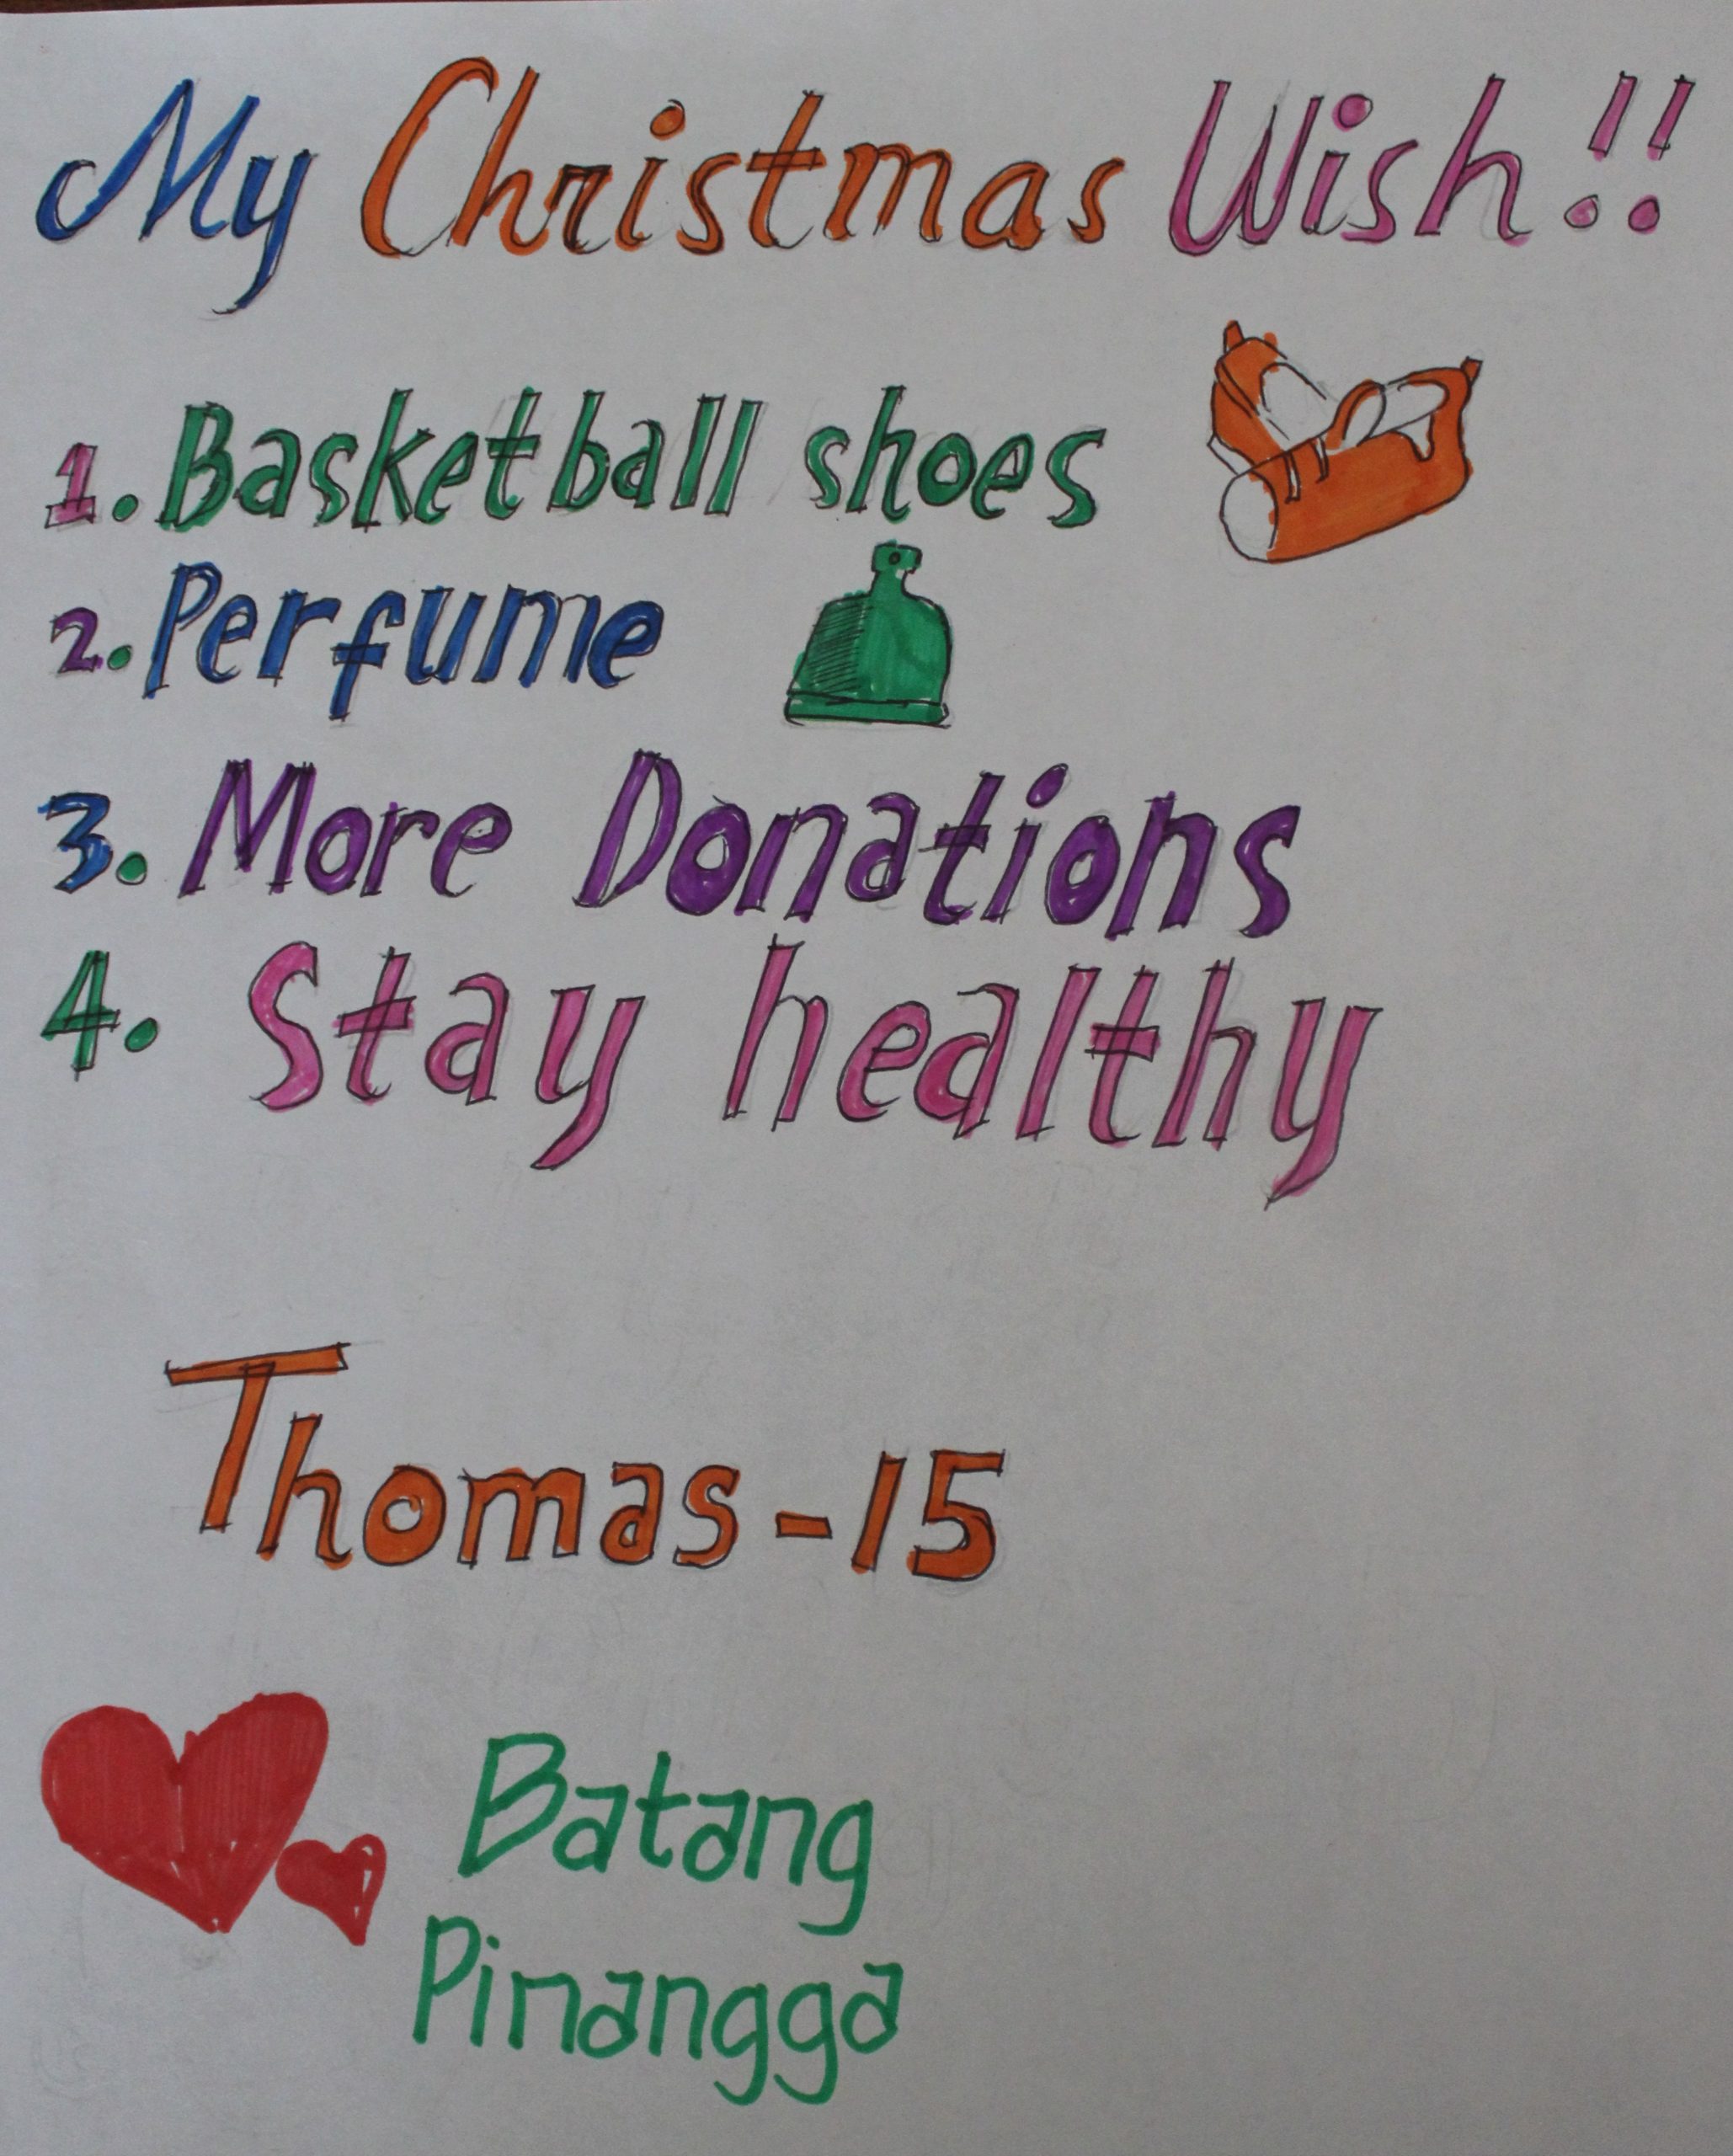 My Christmas Wish!!
1. Basketball shoes
2. Perfume
3. More Donations
4. Stay healthy
Thomas-15
Batang
Pinangga